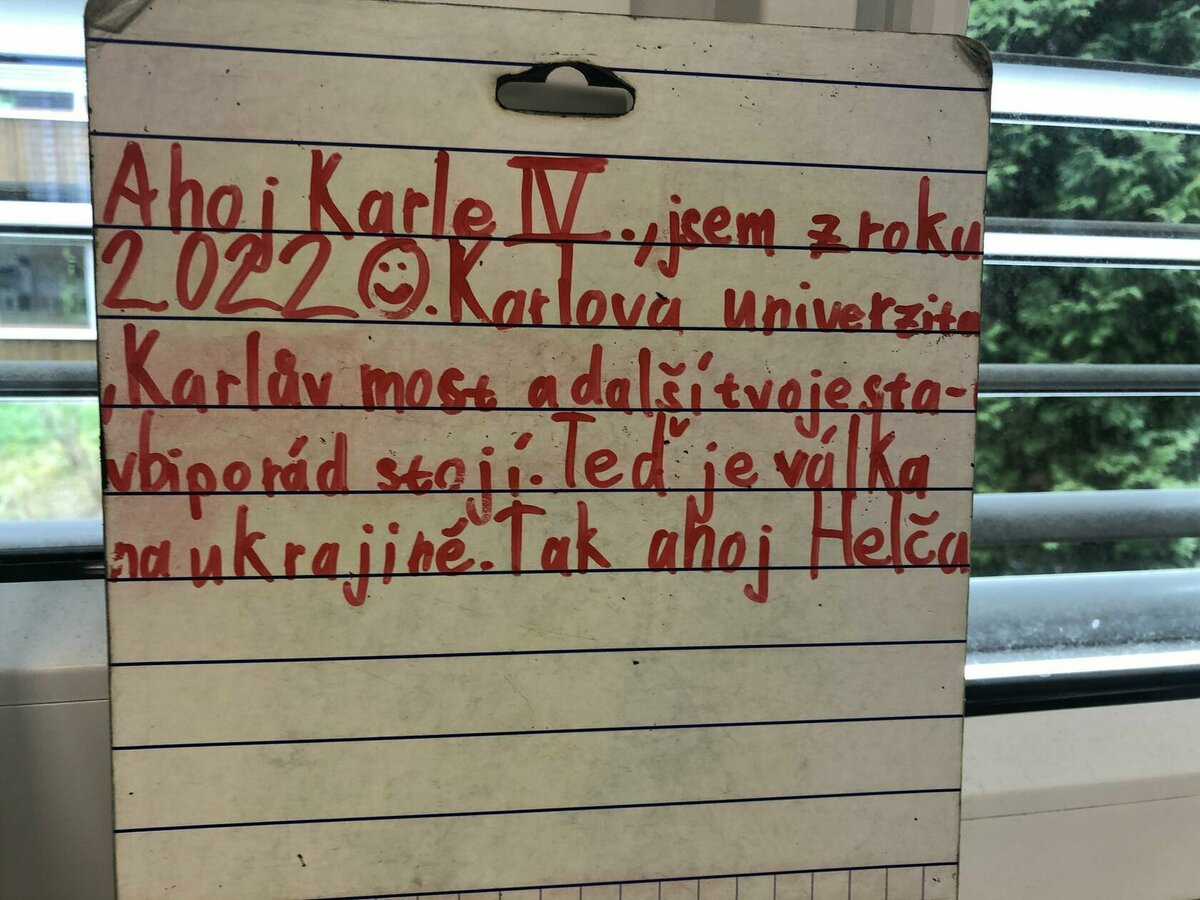 Ahoj Karle IV., jsem z roku
2022☺. Karlova univerzita
,Karlův most a další tvoje sta-
vbi pořád stojí. Teď je válka
na ukrajině. Tak ahoj Helča